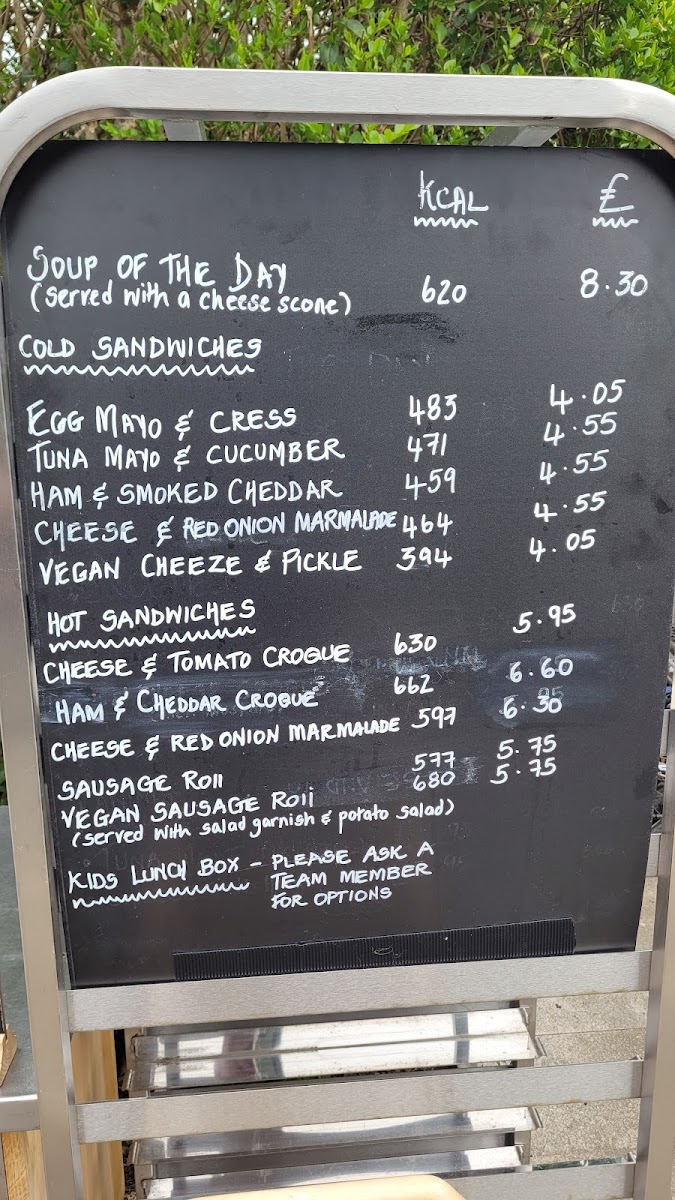 KCAL £
SOUP OF THE DAY
(served with a cheese scone) 620 8.30
COLD SANDWICHES
EGG MAYO & CRESS 483 4.05
TUNA MAYO & CUCUMBER 471 4.55
HAM & SMOKED CHEDDAR 459 4.55
CHEESE & RED ONION MARMALADE 464 4.55
VEGAN CHEEZE & PICKLE 394 4.05
HOT SANDWICHES
CHEESE & TOMATO CROQUE 630 5.95
HAM & CHEDDAR CROQUE 662 6.60
CHEESE & RED ONION MARMALADE 597 6.30
SAUSAGE Roll 577 5.75
VEGAN SAUSAGE Roll 680 5.75
(served with salad garnish & potato salad)
KIDS LUNCH BOX - PLEASE ASK A
TEAM MEMBER
FOR OPTIONS